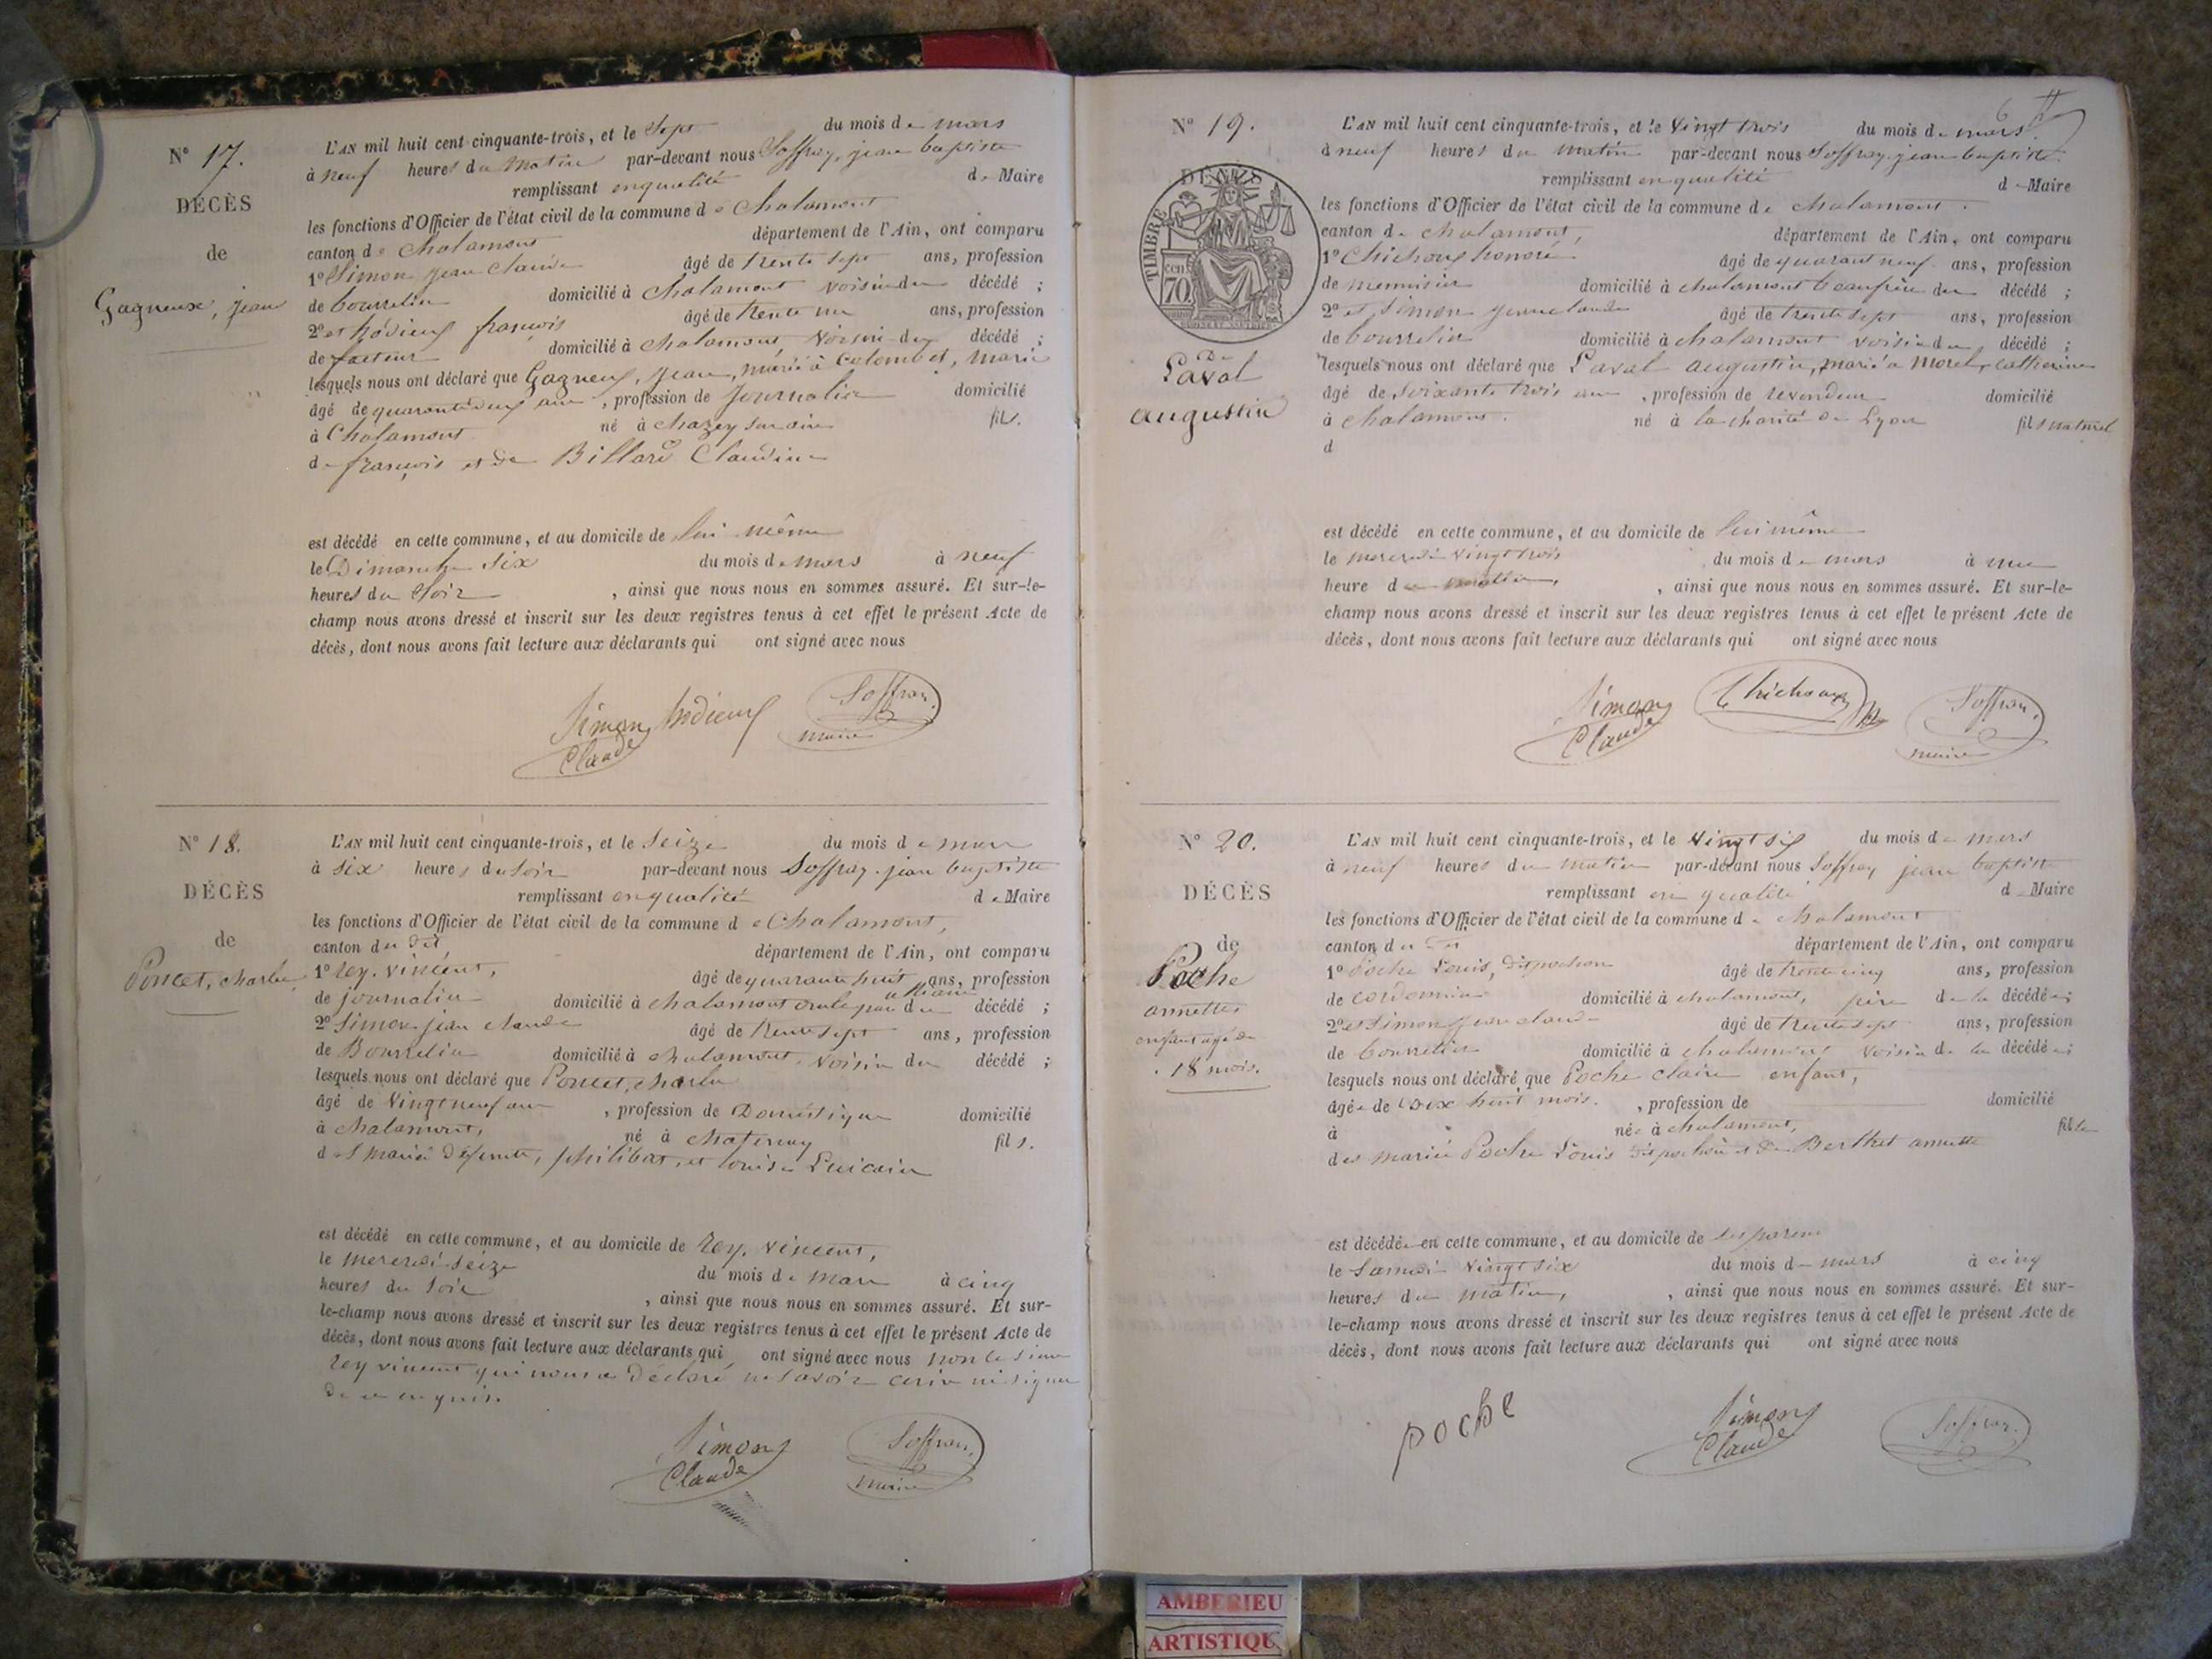 N° 17.
DÉCÈS
de
Gagneux, jean
L'AN mil huit cent cinquante-trois, et le Sept du mois de mars
à neuf heures du matin par-devant nous Soffray, jean baptiste
remplissant en qualité de Maire
les fonctions d'Officier de l'état civil de la commune de Chalamont
canton de Chalamont département de l'Ain, ont comparu
1° Simon jean Claude âgé de trente sept ans, profession
de bourrelier domicilié à Chalamont voisin du décédé ;
2° et françois âgé de trente un ans, profession
de facteur domicilié à Chalamont, voisin du décédé ;
lesquels nous ont déclaré que Gagneux, jean, marié à Colombet, marie
âgé de quarante deux ans, profession de Journalier domicilié
à Chalamont né à Chazey sur ain fils.
de françois et de Billard Claudine
est décédé en cette commune, et au domicile de lui même
le Dimanche Six du mois de mars à neuf
heures du Soir, ainsi que nous nous en sommes assuré. Et sur-le-
champ nous avons dressé et inscrit sur les deux registres tenus à cet effet le présent Acte de
décès, dont nous avons fait lecture aux déclarants qui ont signé avec nous
Simon Claude Soffray maire
N° 18.
DÉCÈS
de
Poncet, charles
L'AN mil huit cent cinquante-trois, et le Seize du mois de mars
à Six heures du Soir par-devant nous Soffray jean baptiste
remplissant en qualité de Maire
les fonctions d'Officier de l'état civil de la commune de Chalamont,
canton du dit département de l'Ain, ont comparu
1° rey. vincent, âgé de quarante huit ans, profession
de journalier domicilié à Chalamont du décédé ;
2° Simon jean claude âgé de trente sept ans, profession
de Bourrelier domicilié à chalamont, voisin du décédé ;
lesquels nous ont déclaré que Poncet, charles
âgé de vingt neuf ans, profession de Domestique domicilié
à chalamont, né à chatenay fils.
des mariés défunts, philibert, et louise
est décédé en cette commune, et au domicile de rey, vincent,
le mercredi seize du mois de mars à cinq
heures du soir, ainsi que nous nous en sommes assuré. Et sur-
le-champ nous avons dressé et inscrit sur les deux registres tenus à cet effet le présent Acte de
décès, dont nous avons fait lecture aux déclarants qui ont signé avec nous non le sieur
rey vincent qui nous a déclaré ne savoir écrire ni signer
de ce enquis.
Simon Claude Soffray maire
N° 19.
TIMBRE
CEN.
70
De
Laval
augustin
6
L'AN mil huit cent cinquante-trois, et le vingt trois du mois de mars
à neuf heures du matin par-devant nous Soffray jean baptiste
remplissant en qualité de Maire
les fonctions d'Officier de l'état civil de la commune de chalamont.
canton de chalamont, département de l'Ain, ont comparu
1° Chichoux honoré âgé de quarant neuf ans, profession
de menuisier domicilié à chalamont beaufrère du décédé ;
2° et Simon jean claude âgé de trente sept ans, profession
de bourrelier domicilié à chalamont voisin du décédé ;
lesquels nous ont déclaré que Laval augustin, marié à Morel, catherine
âgé de soixante trois ans, profession de revendeur domicilié
à chalamont. né à la charité de Lyon fils naturel
d
est décédé en cette commune, et au domicile de lui même
le mercredi vingt trois du mois de mars à une
heure du matin, ainsi que nous nous en sommes assuré. Et sur-le-
champ nous avons dressé et inscrit sur les deux registres tenus à cet effet le présent Acte de
décès, dont nous avons fait lecture aux déclarants qui ont signé avec nous
Simon Claude Chichoux Soffray maire
N° 20.
DÉCÈS
de
Poche
annette
enfant agé de
18 mois.
L'AN mil huit cent cinquante-trois, et le vingt six du mois de mars
à neuf heures du matin par-devant nous Soffray jean baptiste
remplissant en qualité de Maire
les fonctions d'Officier de l'état civil de la commune de chalamont
canton du dit département de l'Ain, ont comparu
1° Poche Louis, âgé de trente cinq ans, profession
de cordonnier domicilié à chalamont, père de la décédée ;
2° et Simon jean claude âgé de trente sept ans, profession
de bourrelier domicilié à chalamont voisin de la décédée ;
lesquels nous ont déclaré que Poche claire enfant,
âgée de dix huit mois. , profession de domicilié
à née à chalamont, fille
des mariés Poche Louis et de Berthet annette
est décédée en cette commune, et au domicile de ses parens
le Samedi vingt six du mois de mars à cinq
heures du matin, ainsi que nous nous en sommes assuré. Et sur-
le-champ nous avons dressé et inscrit sur les deux registres tenus à cet effet le présent Acte de
décès, dont nous avons fait lecture aux déclarants qui ont signé avec nous
poche Simon Claude Soffray
AMBERIEU
ARTISTIQU